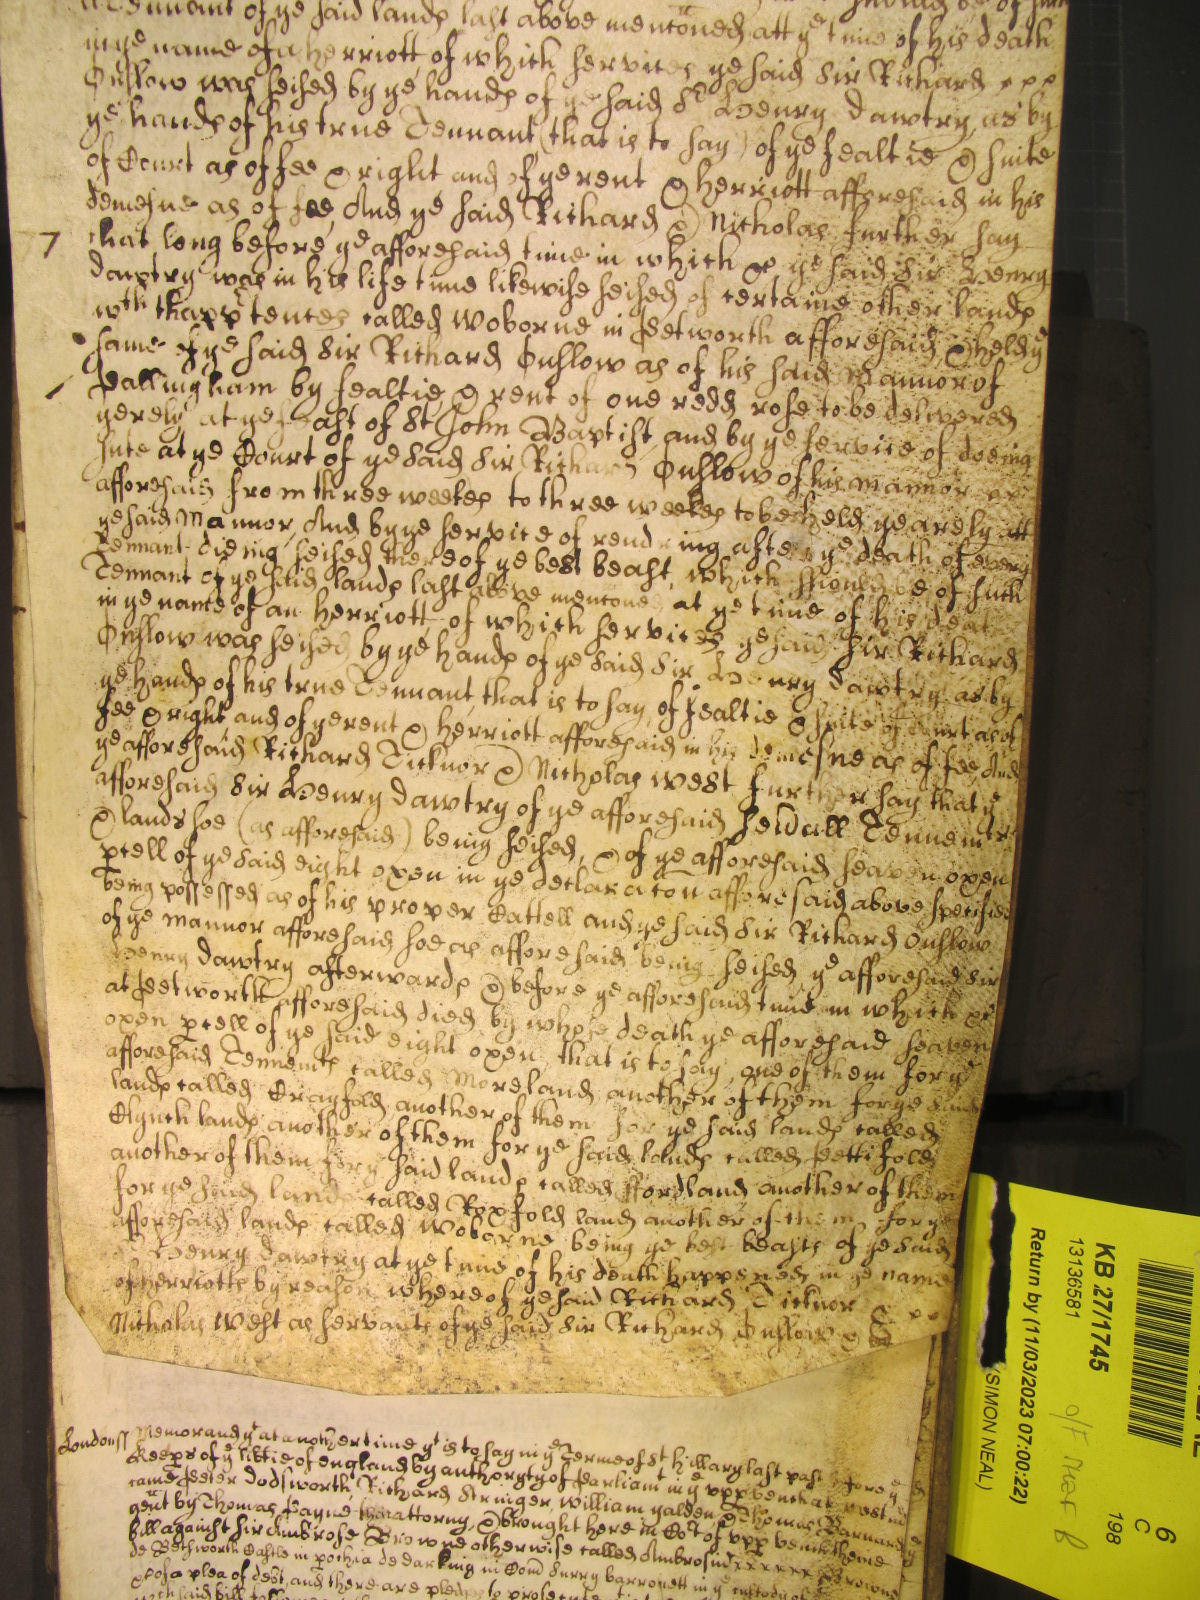 Tennant of ye said lands last above menconed att ye time of his death
in ye name of a herriott, of which services ye said Sir Richard
Onslow was seised by ye hands of ye said Sr Henry Dawtry, as by
ye hands of his true Tennant (that is to say) of ye fealtie & suite
of Court as of fee & right and of ye rent & herriott afforesaid in his
demesne as of fee And ye said Richard & Nicholas further say
7 that long before ye afforesaid time in which &c ye said Sir Henry
Dawtry was in his life time likewise seised of certaine other lands
wth thapptences called Woborne in Petworth afforesaid & held ye
same of ye said Sir Richard Onslow as of his said Mannor of
Dallingham by fealtie & rent of one redd rose to be delivered
yerely at ye feast of St John Baptist, and by ye service of doeing
sute at ye Court of ye said Sir Richard Onslow of his mannor
afforesaid from three weekes to three weekes to be held yearely att
ye said Mannor, And by ye service of rendring after ye death of every
Tennant dieing seised thereof ye best beast, which should be of such
Tennant of ye said lands last above menconed at ye time of his death
in ye name of an herriott, of which services ye said Sir Richard
Onslow was seised by ye hands of ye said Sir Henry Dawtry as by
ye hands of his true Tennant, that is to say, of fealtie & suite of Court as of
fee & right and of ye rent & herriott afforesaid in his demesne as of fee, And
ye afforesaid Richard Ticknor & Nicholas West further say that ye
afforesaid Sir Henry Dawtry of ye afforesaid sevrall Tennemts
& lands soe (as afforesaid) being seised, & of ye afforesaid seaven oxen
pcell of ye said eight oxen in ye declaracon afforesaid above specified
being possessed as of his proper Cattell and ye said Sir Richard Onslow
of ye mannor afforesaid soe as afforesaid being seised, ye afforesaid Sir
Henry Dawtry afterwards & before ye afforesaid time in which &c
at Petworth afforesaid died by whose death ye afforesaid seaven
oxen pcell of ye said eight oxen, that is to say, one of them for ye
afforesaid Tennemts called Moreland another of them for ye said
lands called Crayfold, another of them for ye said lands called
lands another of them for ye said lands called Pettifold
another of them for ye said lands called ffordland another of them
for ye said lands called Roxfold land another of them for ye
afforesaid lands called Woborne being ye best beasts of ye said
Sr Henry Dawtry at ye time of his death happened in ye name
of herriotts by reason whereof ye said Richard Ticknor &
Nicholas West as servants of ye said Sir Richard Onslow &
London ss Memorand yt at another time yt is to say in ye Terme of St Hillary last past before ye
Keeps of ye libtie of England by authoryty of Parliamt in ye vpp bench at Westm
came Peeter Dodsworth Richard Stringer, William yalden & Thomas Barnard
gent by Thomas Payne their attorny, & brought here in Cot of vpp bench theire
bill against Sir Ambrose Browne otherwise called Ambrosiu Browne
de Bethworth Castle in pochia de darking in Com Surry barronett in ye custody
of a plea of debt, and there are pledgs to prosecute
KB 27/1745
13136581
Return by (11/03/2023 07:00:22)
(SIMON NEAL)
6
C
198